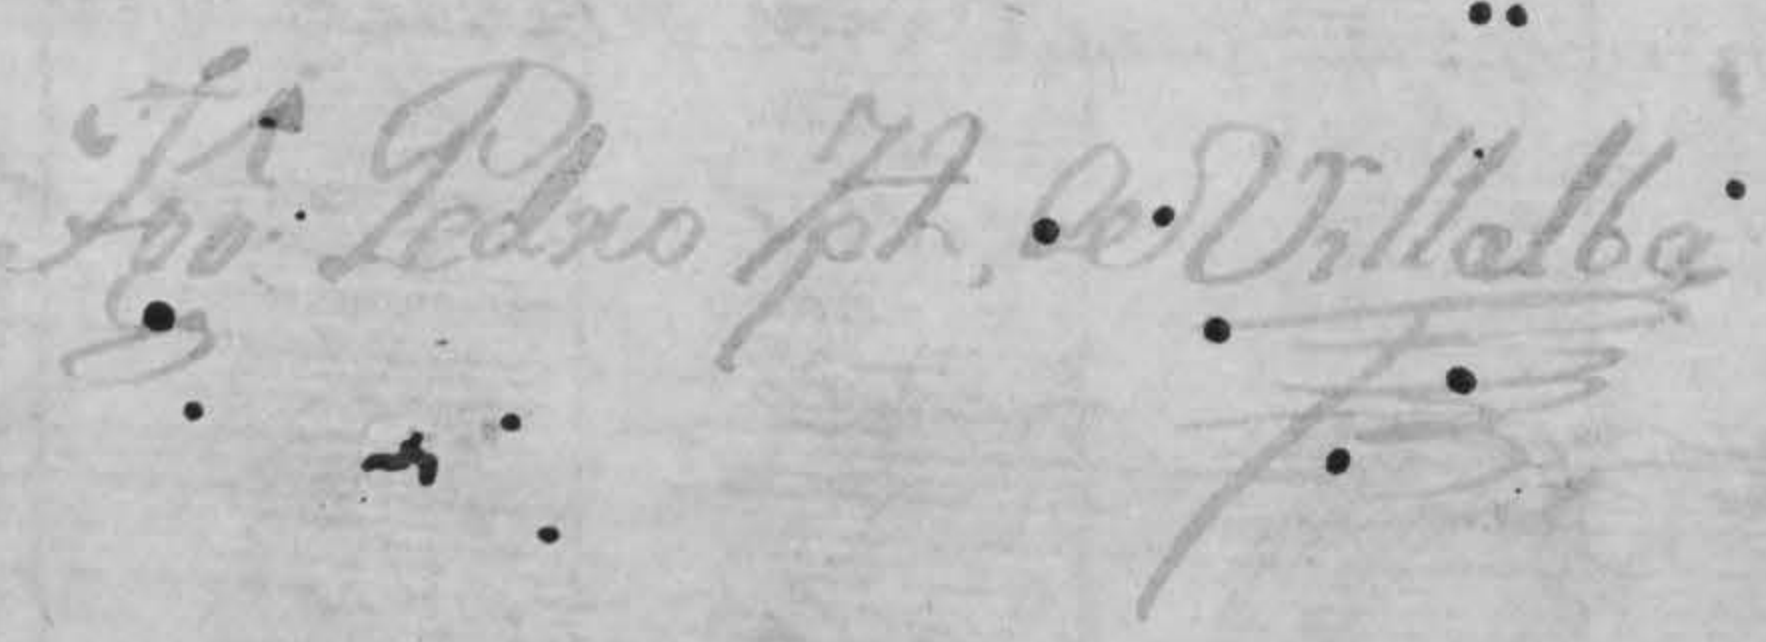 Pedro Jph. de Villalba